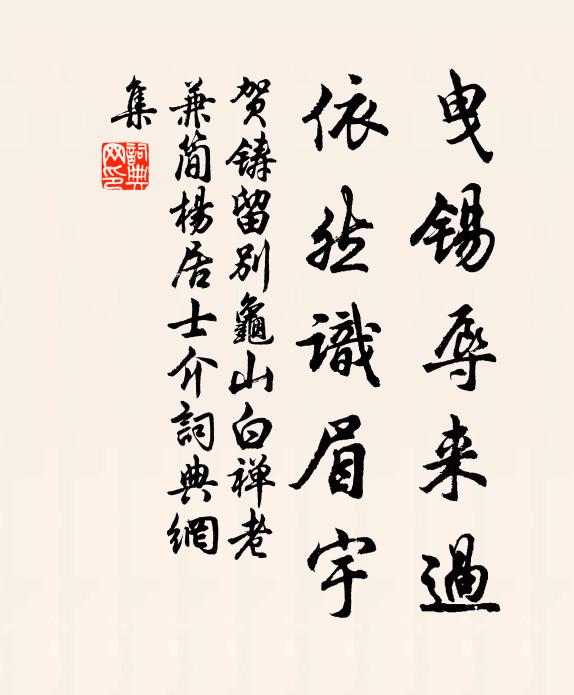 曳锡辱来過
依然識眉宇
贺鋳留别龜山白禅老
兼简楊居士介詞典網
集
詞典
网印